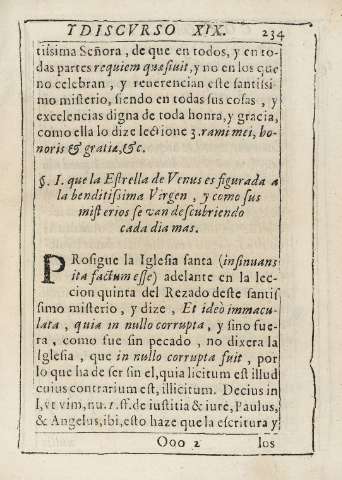 Y DISCVRSO XIX. 234
tissima Señora, de que en todos, y en to-
das partes requiem quæsiuit, y no en los que
no celebran, y reuerencian este santissi-
mo misterio, siendo en todas sus cosas, y
excelencias digna de toda honra, y gracia,
como ella lo dize lectione 3. rami mei, ho-
noris & gratiæ, &c.
§. I. que la Estrella de Venus es figurada a
la benditissima Virgen, y como sus
misterios se van descubriendo
cada dia mas.
PRosigue la Iglesia santa (insinuans
ita factum esse) adelante en la lec-
cion quinta del Rezado deste santis
simo misterio, y dize, Et ideò immacu-
lata, quia in nullo corrupta, y sino fue-
ra, como fue sin pecado, no dixera la
Iglesia, que in nullo corrupta fuit, por
lo que ha de ser sin el, quia licitum est illud
cuius contrarium est, illicitum. Decius in
l, vt vim, nu. 1. ff. de iustitia & iure, Paulus,
& Angelus, ibi, esto haze que la escritura y
Ooo 2 los